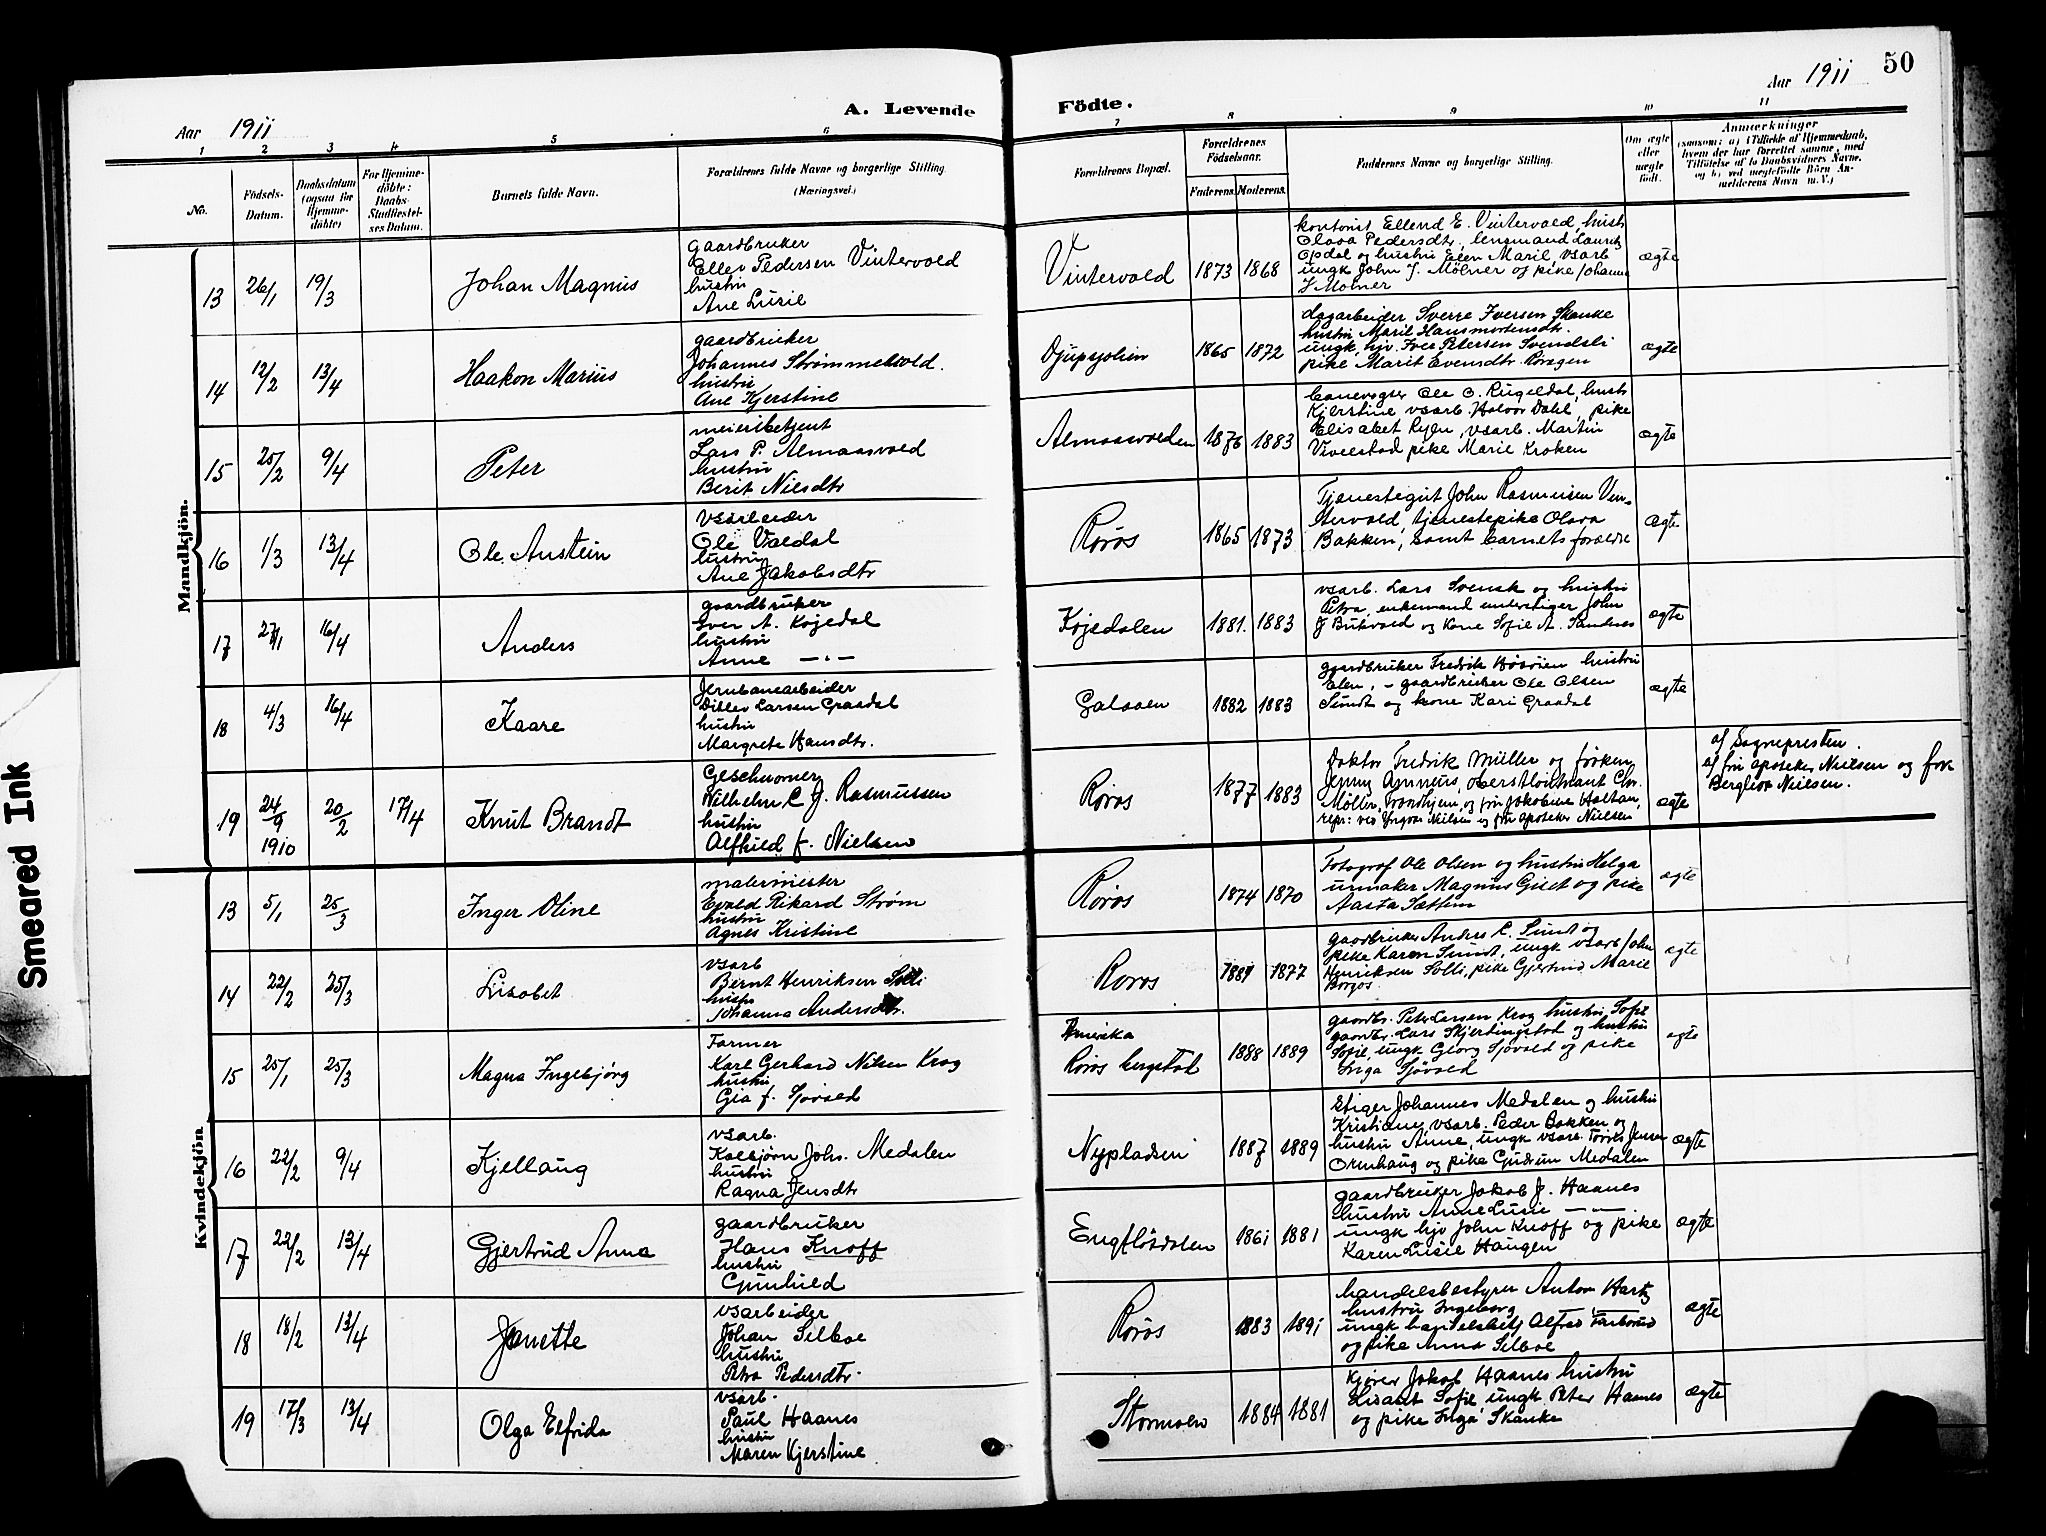 50
Aar 1911
A. Levende
Födte.
Aar 1911
1 2 3 4 5 6 7 8 9 10 11
No.
Födsels-
Datum.
Daabsdatum
(ogsaa for
Hjemme-
döbte)
For Hjemme-
döbte:
Daabs-
Stadfæstel-
ses Datum.
Barnets fulde Navn.
Forældrenes fulde Navne og borgerlige Stilling
(Næringsvei.)
Forældrenes Bopæl.
Forældrenes
Födselsaar.
Faderens.
Moderens.
Faddernes Navne og borgerlige Stilling.
Om ægte
eller
uægte
födt.
Anmærkninger
(saasom: a) i Tilfælde af Hjemmedaab,
hvem der har forrettet samme, med
Tilföielse af to Daabsvidners Navne,
og b) ved uægtefödte Börn An-
melderens Navn m. V.)
Mandkjön.
13 26/1 19/3 Johan Magnus
gaardbruker
Ellev Pedersen Vintervold
hustru
Ane Lusie
Vintervold 1873 1868
kontorist Ellend E. Vintervold, hust
Olava Pedersdtr, lensmand Lauritz
Opdal og hustru Elen Maril, vsarb
ungk John J. Mölner og pike Johanna
J Molner
ægte
14 12/2 13/4 Haakon Marius
gaardbruker
Johannes Strömmevold.
hustru
Ane Kjerstine
Djupsjolien 1865 1872
dagarbeider Sverre Iversen Skanke
hustru Maril Hansmortensdtr.
ungk, hjv. Iver Petersen Svendsli
pike Marit Evensdtr. Borgen
ægte
15 25/2 9/4 Peter
meieribetjent
Lars P. Almaasvold
hustru
Berit Nilsdtr
Almaasvolden 1876 1883
banevogter Ole O. Rugeldal, hust
Kjerstine vsarb. Halvor Dahl, pike
Elisabet Ryen, vsarb. Martin
Vivelstad pike Marie Kroken
ægte
16 1/3 13/4 Ole Austein
vsarbeider
Ole Vældal
hustru
Ane Jakobsdtr
Röros 1865 1873
Tjenestegut John Rasmusen Vin-
tervold, tjenestepike Olava
Bakken, samt barnets forældre
ægte
17 27/1 16/4 Anders
gaardbruker
Iver A. Kojedal
hustru
Anne — " —
Kojedalen 1881. 1883
vsarb. Lars Svensk og hustru
Petra, enkemand understiger John
J Bukvold og kone Sofie A. Sandnes
ægte
18 4/3 16/4 Kaare
Jernbanearbeider
Ditlev Larsen Graadal
hustru
Margrete Hansdtr.
Galaaen 1882 1883
gaardbruker Fredrik Hösöien hustru
Elen, - gaardbruker Ole Olsen
Sundt og kone Kari Graadal
ægte
19 24/9 1910 20/2 17/4 Knut Brandt
Geschworner
Wilhelm C J. Rasmussen
hustru
Alfhild f. Nielsen
Röros 1877 1883
Doktor Fredrik Müller og fröken
Jenny Amnéus, oberstlöitnant Chr.
Möller, Trondhjem, og fru Jakobine Holtan,
repr: ved Yngvar Nielsen og fru apoteker Nielsen
ægte
af Sognepresten.
af fru apoteker Nielsen og frk
Bergliot Nielsen.
Kvindekjön
13 5/1 25/3 Inger Oline
malermester
Evald Rikard Ström
hustru
Agnes Kristine
Röros 1874 1870
Fotograf Ole Olsen og hustru Helga
urmaker Magnus Gulet og pike
Aasta Sættem
ægte
14 22/2 25/3 Lisabet
vsarb
Bernt Henriksen Solli
hustru
Johanna Andersdtr.
Roros 1881 1877
gaardbruker Anders C. Sundt og
pike Karen Sundt, ungk vsarb John
Henriksen Solli, pike Gjertrud Marie
Borgos
ægte
15 25/1 25/3 Magna Ingebjörg
Farmer
Karl Gerhard Nilsen Krog
hustru
Gea f. Sjövold
Amerika
Röros bergstad 1888 1889
gaardbr. Peter Larsen Krog hustru Sofie
gaardbr. Lars Skjerdingstad og hustru
Sofie, ungk Georg Sjövold og pike
Inga Sjövold
ægte
16 22/2 9/4 Kjellaug
vsarb.
Kolbjörn Johs. Medalen
hustru
Ragna Jensdtr
Nypladsen 1887 1889
Stiger Johannes Medalen og hustru
Kristiane, vsarb. Peder Bakken og
hustru Anne, ungk vsarb. Torres Jensen
Ormhaug og pike Gudrun Medalen
ægte
17 22/2 13/4 Gjertrud Anna
gaardbruker
Hans Knoff
hustru
Gunhild
Engflösdalen 1861 1881
gaardbruker Jakob J. Haanes
hustru Anne Lusie — " —
ungk hjv John Knoff og pike
Karen Lusie Haugen
ægte
18 18/2 13/4 Janette
vsarbeider
Johan Selboe
hustru
Petra Pedersdtr.
Röros 1883 1891
handelsbestyrer Anton Hartz
hustru Ingeborg
ungk handelsbetj Alfred Tanberg
og pike Anna Selboe
ægte
19 17/3 13/4 Olga Elfrida
vsarb.
Paul Haanes
hustru
Maren Kjerstine
Stormoen 1884 1881
Kjörer Jakob Haanes hustru
Lisabet Sofie ungk Peter Haanes
og pike Inga Skanke
ægte
Smeared Ink